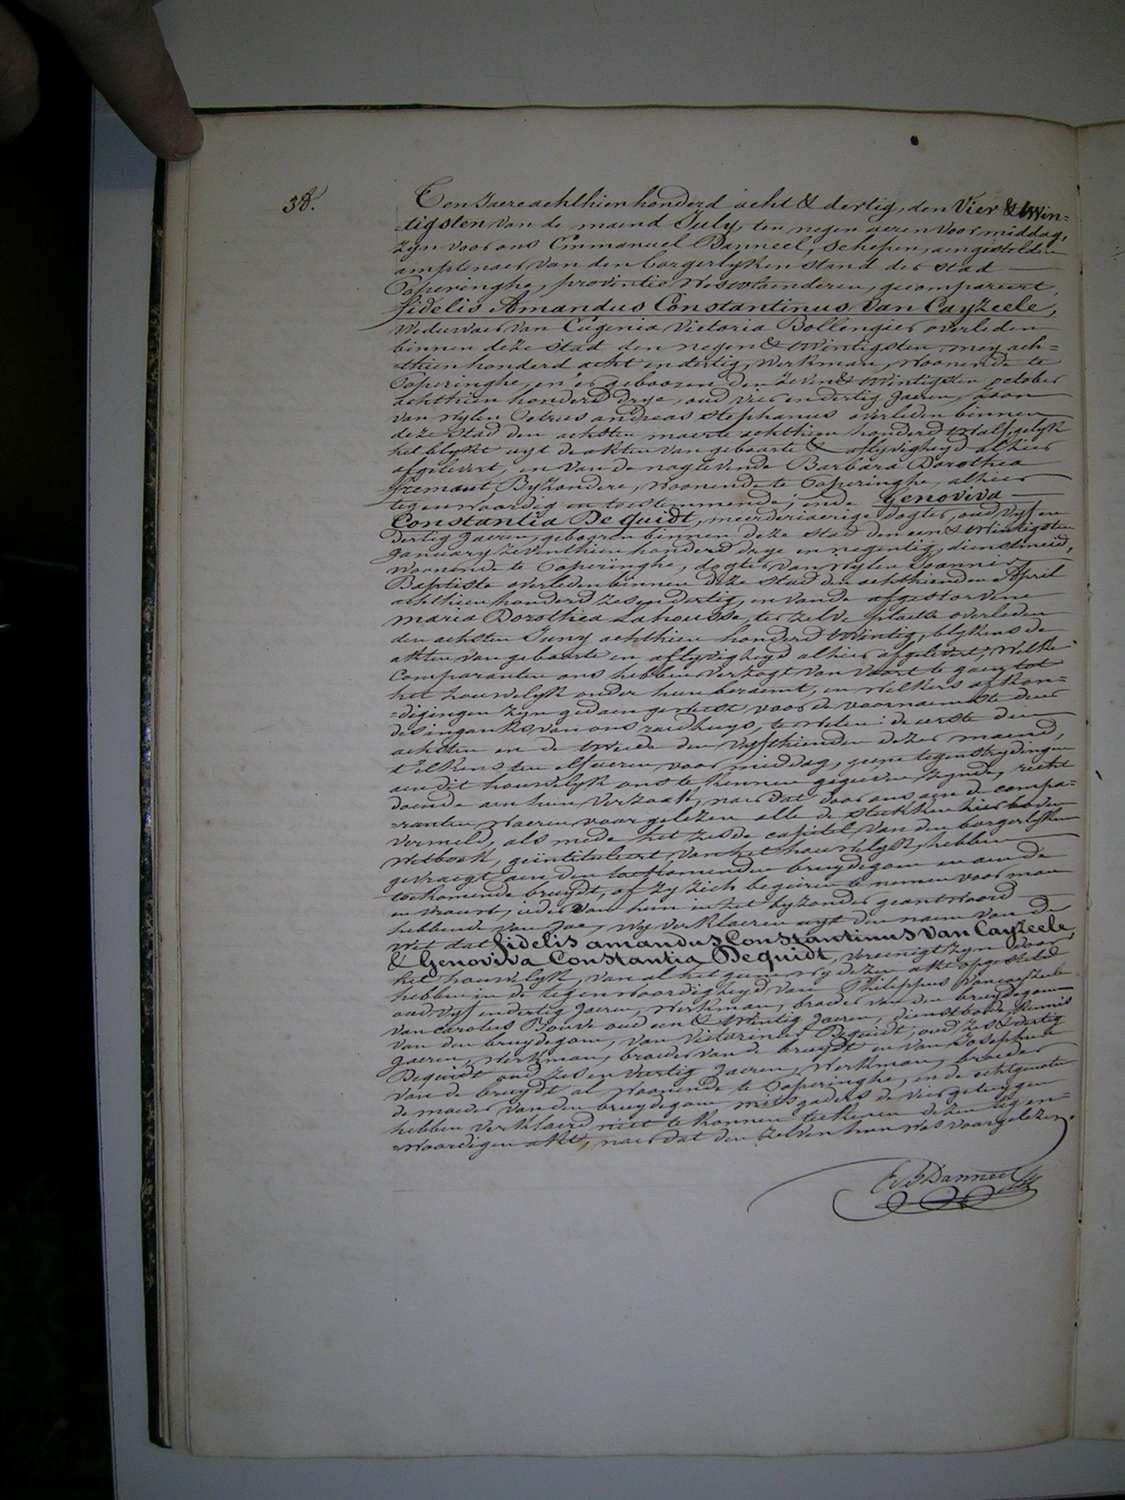 38.
Ten Jaere achthien honderd acht & dertig, den Vier & twin=
tigsten van de maend July, ten negen ueren voormiddag,
zyn voor ons Emmanuel Danneel, Schepen, aengestelden
amptenaer van den borgerlyken stand der stad
Poperinghe, provintie Westvlaenderen, gecompareert
fidelis Amandus Constantinus Van Cayzeele,
Weduwaer van Eugenia Victoria Bollengier overleden
binnen deze stad den negen & twintigsten mey ach=
thien honderd acht en dertig, werkman, woonende te
Poperinghe, en er geboozen den zeven & twintigsten october
achthien honderd drye, oud vier en dertig jaeren, zoon
van wylen Petrus andreas Stephanus overleden binnen
deze stad den achsten maerte achthien honderd twalf, gelyk
het blykt uyt de akten van geboorte & aflyvigheyd alhier
afgelevert, en van de nagelevende Barbara Dorothea
fremaut, Byzondere, woonende te Poperinghe, alhier
tegenwoordig en toestemmende; ende Genoviva
Constantia De Quidt, meerderjaerige dogter, oud vyf en
dertig jaeren, geboren binnen deze stad den een & twintigsten
January zeventhien honderd drye en negentig, dienstmeid,
woonende te Poperinghe, dogter van wylen Joannes
Baptiste overleden binnen deze stad den achthienden April
achthien honderd zes en dertig, en van de afgestorvene
maria Dorothea Lahousse, ter zelve plaets overleden
den achsten Juny achthien honderd twintig, blykens de
akten van geboorte en aflyvigheyd alhier afgelevert; Welke
Comparanten ons hebben verzogt van voort te gaen tot
het houwelyk onder hun beraemt, en welkers afkon=
=digingen zyn gedaen geweest voor de voornaemste deur
des ingangs van ons raedhuys, te weten: de eerste den
achsten en de tweede den vyfthienden dezer maend,
telkens ten elf ueren voor middag, geene tegenstrydingen
aen dit houwelyk ons te kennen gegeven zynde, recht
doende aen hun verzoek, naer dat door ons aen de compa=
=ranten waeren voorgelezen alle de stukken hier boven
vermeld, als mede het zesde capitel van den borgerlyken
Wetboek, geintituleert, van het houwelyk, hebben
gevraegt aen den toekomenden bruydegom en aen de
toekomende bruydt, of zy zich begeiren te nemen voor man
en vrouw; ieder van hun in het byzonder geantwoord
hebbende van Jae, Wy verklaeren uyt den naem van de
Wet dat fidelis amandus Constantinus Van Cayzeele
& Genoviva Constantia De quidt, vereenigt zyn door
het houwelyk, van al het geene wy dezen akt opgesteld
hebben in de tegenwoordigheyd van Philippus Vancayzeele
oud vyf en dertig jaeren, werkman, broeder van den bruydegom
van Carolus Bouve oud een & twintig jaeren, dienstbode, kennis
van den bruydegom, van Victorinus Dequidt, oud zes & dertig
jaeren, werkman, broeder van de bruydt en van Josephus
Dequidt oud zes en veertig jaeren, werkman, broeder
van de bruydt al woonende te Poperinghe, en de echtgenoten
de moeder van den bruydegom mitsgaders de vier getuygen
hebben verklaerd niet te konnen teekenen dezen tegen=
=woordigen akt, naer dat den zelven hun was voorgelezen.
Danneel